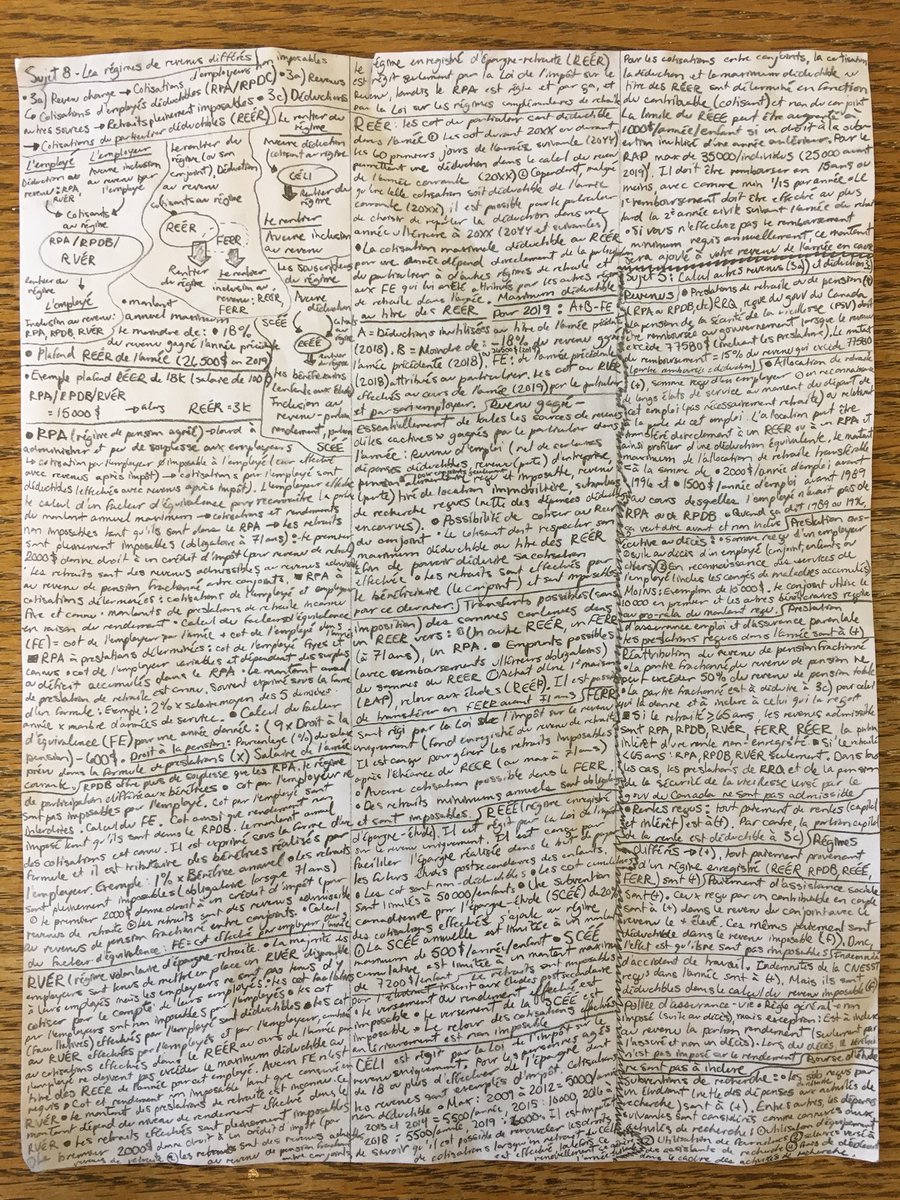 Sujet 8 - Les régimes de revenus différés
• 3a) Revenu charge → Cotisations d'employeurs
↳ Cotisations d'employés déductibles (RPA/RPDC) • 3a) Revenus
autres sources → Retraits pleinement imposables • 3c) Déductions
→ Cotisations du particulier déductibles (REÉR)
L'employé
Déduction au revenu: RPA, RVÉR
L'employeur
Aucune inclusion au revenu pour l'employé
Cotisants au régime
RPA/RPDB/
RVÉR
Rentier du régime
L'employé
Inclusion au revenu:
RPA, RPDB, RVÉR
Le rentier du régime (ou son conjoint) Déduction au revenu
Cotisants au régime
REÉR
FERR
Rentier du régime
Le rentier
inclusion au revenu: REÉR, FERR
Le rentier du régime
Aucune déduction
(cotisant au régime)
CÉLI
Rentier du régime
Le rentier
Aucune inclusion au revenu
Les souscripteurs du régime
Aucune déduction
SCÉÉ
REÉÉ
Les bénéficiaires
(enfants aux études)
Inclusion au revenu
• montant annuel maximum
le moindre de: • 18%
du revenu gagné l'année précédente
• Plafond REÉR de l'année (26 500$ en 2019)
• Exemple plafond REÉR de 18k (salaire de 100
RPA/RPDB/RVÉR
= 15000$ → alors REÉR = 3k
• RPA (régime de pension agréé) - lourd à
administrer et peu de souplesse aux employeurs
↳ cotisation par l'employeur
déductibles (effectués avec revenus avant impôt). L'employeur effectue
le calcul d'un facteur d'équivalence pour reconnaître la partie
du montant annuel maximum → cotisations et rendements
non imposables tant qu'ils sont dans le RPA → Les retraits
sont pleinement imposables (obligatoire à 71 ans) → le premier
2000$ donne droit à un crédit d'impôt (pour revenu de retraite)
• Les retraits sont des revenus admissibles
au revenu de pension fractionné entre conjoints. • RPA à
cotisations déterminées: cotisations de l'employé et employeur
fixe et connu → montants de prestations de retraite inconnu
en raison du rendement • Calcul du facteur d'équivalence
(FE) = cot de l'employeur par l'année + cot de l'employé
■ RPA à prestations déterminées: cot de l'employé fixes et
connus • cot de l'employeur variables et dépendent des surplus
ou déficit accumulés dans le RPA • Le montant annuel
de prestation de retraite est connu. Souvent exprimé sous la forme
d'un formule: Exemple: 2% x salaire moyen des 5 dernières
année x nombre d'années de service. • Calcul du facteur
d'équivalence (FE) pour une année donnée: (9 x Droit à la
pension) - 600$. Droit à la pension: Pourcentage (%) du salaire
prévu dans la formule de prestations (x) Salaire de l'année
courante
RPDB offre plus de souplesse que les RPA, le régime
de participation différée aux bénéfices • cot par l'employeur ne
sont pas imposables pour l'employé. Cot par l'employé sont
interdites. • Calcul du FE. Cot ainsi que rendement non
imposé tant qu'ils sont dans le RPDB. Le montant annuel
des cotisations est connu. Il est exprimé sous la forme d'un
formule et il est tributaire des bénéfices réalisés par
l'employeur. Exemple: 1% x Bénéfice annuel • les retraits
sont pleinement imposables (obligatoire lorsque 71 ans)
① le premier 2000$ donne droit à un crédit d'impôt (pour
revenus de retraite) ② Les retraits sont des revenus admissibles
au revenus de pension fractionné entre conjoints. • Calcul
du facteur d'équivalence: FE = cot effectué par employeur dans l'année
RVÉR (régime volontaire d'épargne-retraite. • La majorité des
employeurs sont tenus de mettre en place un RVÉR disponible
à leurs employés mais les employeurs ne sont pas tenus d'y
cotiser pour le compte de leurs employés •
par l'employeur sont non imposables pour l'employé • les cot
(facultatives) effectuées par l'employé sont déductibles • Les cot
au RVÉR effectuées par l'employé et par l'employeur
aux cotisations effectués dans le REÉR au cours de l'année par
l'employé ne doivent pas excéder le maximum déductible au
titre des REÉR de l'année par cet employé. Aucun FE n'est
requis • Cot et rendement non imposable tant que conservé en
RVÉR • Le montant des prestations de retraite est inconnu. Ce
montant dépend du niveau de rendement effectué dans le
RVÉR • Les retraits effectués sont pleinement imposables
①le premier 2000$ donne droit à un crédit d'impôt (pour
revenus de retraite) ② les retraits sont des revenus admissibles
au revenu de pension fractionné entre conjoints
Le régime enregistré d'épargne-retraite (REÉR)
est régit seulement par la Loi de l'impôt sur le
revenu, tandis le RPA est régie et par ça, et
par la Loi sur les régimes complémentaires de retraite
REÉR: les cot du particulier sont déductible
dans l'année ① Les cot durant 20XX ou durant
les 60 premiers jours de l'année suivante (20YY)
permettent une déduction dans le calcul du revenu
de l'année courante (20XX) ② Cependant, malgré
qu'une telle cotisation soit déductible de l'année
courante (20XX), il est possible pour le particulier
de choisir de reporter la déduction dans une
année ultérieure à 20XX (20YY et suivantes)
• La cotisation maximale déductible au REÉR
pour une année dépend directement de la participation
du particulier à d'autres régimes de retraite
aux FE qui lui ont été attribués pour les autres régimes
de retraite dans l'année. Maximum déductible
au titre des REÉR Pour 2019: A+B-FE
A = Déductions inutilisées au titre de l'année précédente
(2018). B = Moindre de: -18% du revenu gagné
l'année précédente (2018) ou 26500$ (2019) FE: de l'année précédente
(2018), attribués au particulier. Les cot au RVÉR
effectués au cours de l'année (2019) par le particulier
et par son employeur. Revenu gagné -
Essentiellement de toutes les sources de revenus
dites «actives» gagnés par le particulier dans
l'année: Revenu d'emploi (net de certaines
dépenses déductibles, revenu (perte) d'entreprise
pension alimentaire reçu et imposable, revenu
(perte) tiré de location immobilière, subvention
de recherche reçues (nette des dépenses déductibles
encourues). • Possibilité de cotiser au REÉR
du conjoint • Le cotisant doit respecter son
maximum déductible au titre des REÉR
afin de pouvoir déduire sa cotisation
effectuée • Les retraits sont effectués par
le bénéficiaire (le conjoint) et sont imposables
par ce dernier
Transferts possibles (sans
imposition) des sommes contenues dans
un REER vers: ① Un autre REÉR, un FERR
(à 71 ans), un RPA. • Emprunts possibles
(avec remboursements ultérieurs obligatoires)
de sommes du REER ① Achat d'une 1ère maison
(RAP), retour aux études (REÉP). Il est possible
de transférer en FERR avant 71 ans
FERR
Sont régi par la Loi de l'impôt sur le revenu
uniquement (fond enregistré du revenu de retraite)
Il est conçu pour gérer les retraits imposables
après l'échéance du REÉR (au max = 71 ans)
• Aucune cotisation possible dans le FERR
• Des retraits minimums annuelle sont obligatoires
et sont imposables.
REÉÉ (régime enregistré
d'épargne-étude). Il est régit par la Loi de l'impôt
du revenu uniquement. Il est conçu pour
faciliter l'épargne réalisée dans le but de
les futurs études postsecondaires des enfants.
• Les cot sont non-déductibles • les cot cumulatives
sont limités à 50 000/enfants • Une subvention
canadienne pour l'épargne-étude (SCÉÉ) de 20%
des cotisations effectués, s'ajoute au régime
① La SCÉÉ annuelle est limitée à un montant
maximum de 500$/année/enfant • SCÉÉ
cumulative est limitée à un montant maximum
de 7200$/enfant • Les retraits sont imposables
pour l'étudiant inscrit aux études postsecondaire
• Le versement du rendement effectué est
imposable • Le versement de la SCÉÉ est
imposable • Le retour des cotisations effectués
antérieurement est non imposable
CÉLI est régit par la Loi de l'impôt sur le
revenu uniquement. Pour les personnes agés
de 18 ou plus d'effectuer de l'épargne dont
les revenus sont exemptés d'impôt. Cotisations
non déductible • Max: 2009 à 2012 = 5000/année
2013 et 2014 = 5500/année, 2015: 10000, 2016 à
2018 = 5500/année, 2019 = 6000$ Il est important
de savoir qu'il est possible de renouveler les droits
de cotisations lorsqu'un retrait au CÉLI
est effectué
Par les cotisations entre conjoints, la cotisation
la déduction et le maximum déductible au
titre des REÉR sont déterminé en fonction
du contribuable (cotisant) et non du conjoint
La limite du REÉÉ peut être augmenté à
1000$/année/enfant si un droit à la subvention
inutilisé d'une année antérieure. Pour le
RAP max de 35000/individus (25000 avant
2019). Il doit être rembourser en 15 ans ou
moins, avec comme min 1/15 par année • Le
1er remboursement doit être effectué au plus
tard la 2e année civile suivant l'année du retrait
• Si vous n'effectuez pas le remboursement
minimum requis annuellement, ce montant
sera ajouté à votre revenu de l'année en cause
Sujet 9: Calcul autres revenus (3a) et déductions (3c)
Revenus • Prestations de retraite ou de pension (+)
(RPA ou RPDB, etc) RRQ, reçue du gouv du Canada
La pension de la sécurité de la vieillesse (PSV) doit
être remboursé au gouvernement lorsque le revenu
excède 77580$ (incluant les prestations). Le montant
du remboursement = 15% du revenu qui excède 77580$
(partie remboursée = déduction)
• Allocation de retraite
(+), somme reçu d'un employeur ① en reconnaissance
de longs états de service au moment du départ de
cet emploi (pas nécessairement retraite) ou relativement
à la perte de cet emploi. L'allocation peut être
transféré directement à un REÉR ou à un RPA et
ainsi profiter d'une déduction équivalente. Le montant
maximum de l'allocation de retraite transférable
est la somme de • 2000$/année d'emploi avant
1996 et • 1500$/année d'emploi avant 1989
au cours desquelles l'employé n'avait pas de
RPA ou de RPDB • Quand ça dit 1989 ou 1996,
ça veut dire avant et non inclus
Prestation consécutive au décès
• somme reçu d'un employeur
① suite au décès d'un employé (conjoint, enfants ou
autres) ② En reconnaissance des services de
l'employé (inclus les congés de maladies accumulés)
Moins: Exemption de 10000$. Le conjoint utilise le
10000 en premier et les autres bénéficiaires
au pro-rata du montant reçu.
Prestation
d'assurance emploi et d'assurance parentale
les prestations reçues dans l'année sont à (+)
Attribution du revenu de pension fractionné
• La partie fractionné du revenu de pension ne
peut excéder 50% du revenu de pension totale
• La partie fractionné est à déduire à 3c) pour celui
qui la donne et à inclure à celui qui la reçoit
■ Si le retraité ≥ 65 ans, les revenus admissibles
sont RPA, RPDB, RVÉR, FERR, REÉR, la partie
intérêt d'un rente non-enregistré. • Si le retraité
<65 ans: RPA, RPDB, RVÉR seulement. Dans tous
les cas, les prestations de RRQ et de la pension
de la sécurité de la vieillesse versé par le
gouv du Canada ne sont pas admissible
• Rentes reçus: tout paiement de rentes (capital
et intérêt) est à (+). Par contre, la portion capital
de la rente est déductible à 3c)
Régimes
différés → (+), tout paiement provenant
d'un régime enregistré (REÉR, RPDB, REÉÉ,
FERR) sont (+)
Paiement d'assistance sociale
sont (+). Ceux reçu par un contribuable en couple
sont à (+) dans le revenu du conjoint avec le
revenu le + élevé. Ces mêmes paiement sont
déductible dans le revenu imposable (4). Donc,
l'effet est qu'ils ne sont pas imposables
Indemnités
d'accident de travail. Indemnités de la CNESST
reçus dans l'année sont à (+). Mais ils sont
déductibles dans le calcul du revenu imposable (4)
Police d'assurance-vie • Règle général = non
imposé (suite au décès), mais exception: Est à inclure
au revenu la portion rendement (seulement par
l'assuré et non un décès). Lors du décès, le bénéficiaire
n'est pas imposé sur le rendement
Bourse d'étude
ne sont pas à inclure
Subventions de recherche: • les sub reçus par
un étudiant (nette des dépenses aux activités de
recherche) sont à (+). Entre autres, les dépenses
suivantes sont considérés comme connexes aux
activités de recherche ① Utilisation d'équipement
② Utilisation de fournitures ③ salaire versé à
des assistants de recherche ④ Frais de déplacement
dans le cadre des activités de recherche.